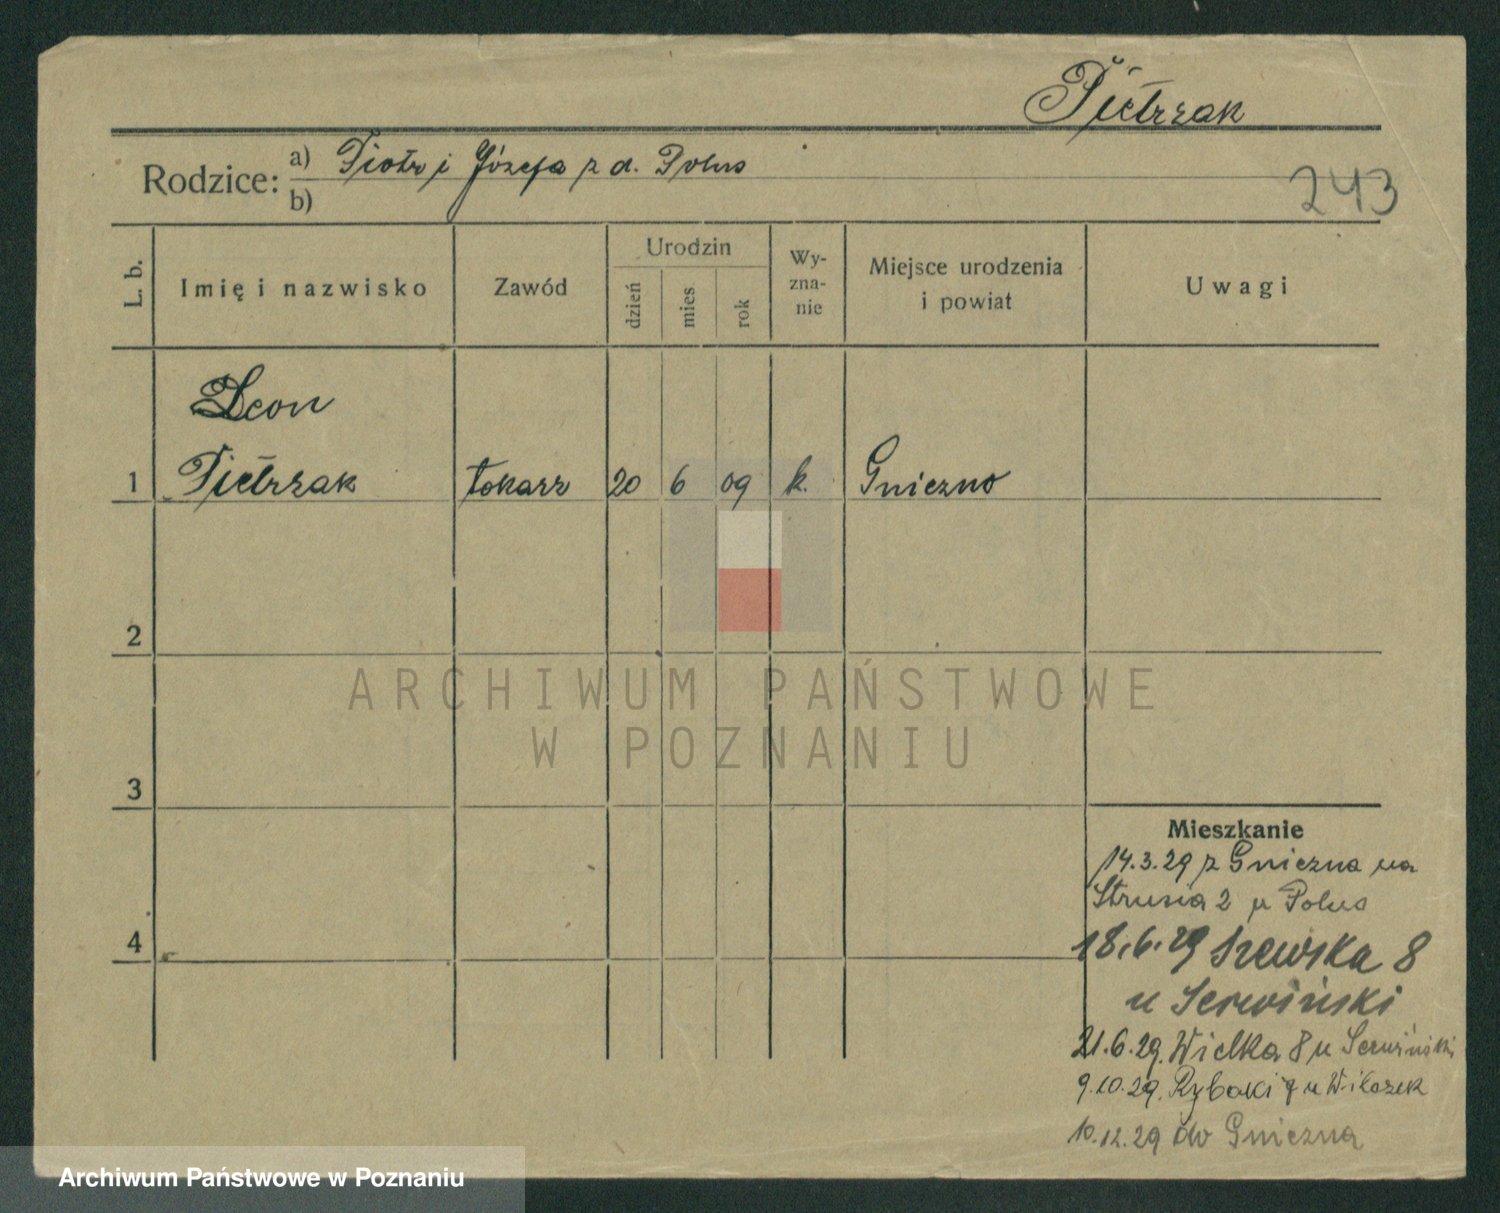 Pietrzak
Rodzice: a) Piotr i Józefa z d. Polus
b)
243
L. b.
Imię i nazwisko
Zawód
Urodzin
dzień
mies
rok
Wy-
zna-
nie
Miejsce urodzenia
i powiat
Uwagi
Leon
1 Pietrzak tokarz 20 6 09 k. Gniezno
2
ARCHIWUM PAŃSTWOWE
W POZNANIU
3
Mieszkanie
14.3.29 z Gniezna na
Strusia 2 u Polus
4
18.6.29 Szewska 8
u Serwiński
21.6.29. Wielka 8 u Serwiński
9.10.29. Rybaki 9 u
10.12.29 do Gniezna
Archiwum Państwowe w Poznaniu